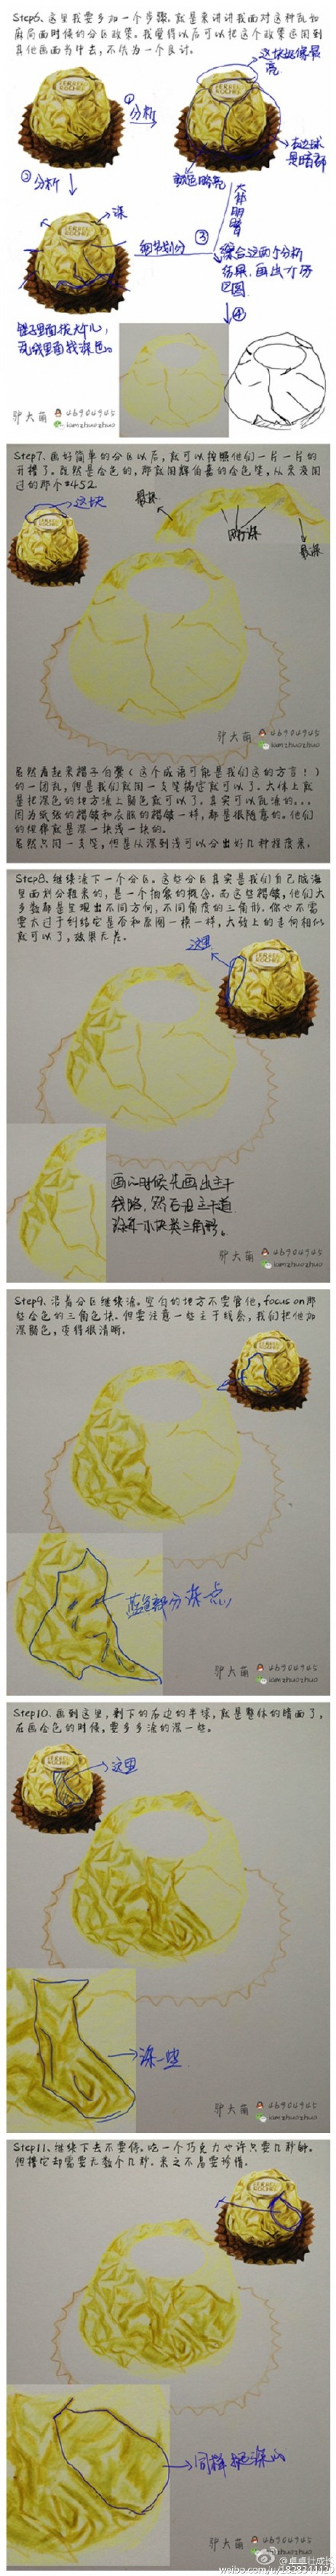 Step6、这里我要多加一个步骤。就是来讲讲我面对这种乱如
麻局面时候的分区政策。我觉得以后可以把这个政策运用到
其他画面当中去，不伤为一个良计。
这块好像最
亮
①
分析
②
分析
右边球
是暗部
颜色略亮
大部明暗
深
细节划分
③
综合这两个分析
结果，画出一个分
区图。
④
乱线里面找深色。
驴大萌
46904945
iamzhuozhuo
Step7、画好简单的分区以后，就可以按照他们一片一片的
开撸了。既然是金色的，那就用辉柏嘉的金色笔，从来没用
过的那个#452.
这块
最深
略深
最深
驴大萌
46904945
iamzhuozhuo
虽然看起来褶子伯囊（这个成语可能是我们这的方言！）
的一团乱，但是我们就用一支笔搞定就可以了。大体上就
是把深色的地方涂上颜色就可以了。真实可以乱涂的。。。
因为纸张的褶皱和衣服的褶皱一样，都是很随意的。他们
的规律就是深一块浅一块的。
虽然只用一支笔，但是从深到浅可以分出好几种程度来。
Step8、继续涂下一个分区。这些分区真实是我们自己脑海
里面划分粗来的，是一个抽象的概念。而这些褶皱，他们大
多数都是呈现出不同方向，不同角度的三角形。你也不需
要太过于纠结它是否和原图一模一样，大致上的走向相似
就可以了，效果无差。
这里
画的时候先画出主干
线路，然后沿主干道
涂每一小块类三角形。
驴大萌
46904945
iamzhuozhuo
Step9、沿着分区继续涂。空白的地方不要管他，focus on那
些金色的三角色块。但要注意一些主干线条，我们把他加
深颜色，变得很清晰。
蓝色部分深一点
驴大萌
46904945
iamzhuozhuo
Step10、画到这里，剩下的右边的半球，就是整体的暗面了，
在画金色的时候，要多多涂的深一些。
这里
深一些
驴大萌
46904945
iamzhuozhuo
Step11、继续下去不要停。吃一个巧克力也许只要几秒钟。
但撸它却需要无数个几秒。来之不易要珍惜。
同样是深的
驴大萌
46904945
iamzhuozhuo
weibo.com/u/1828311125